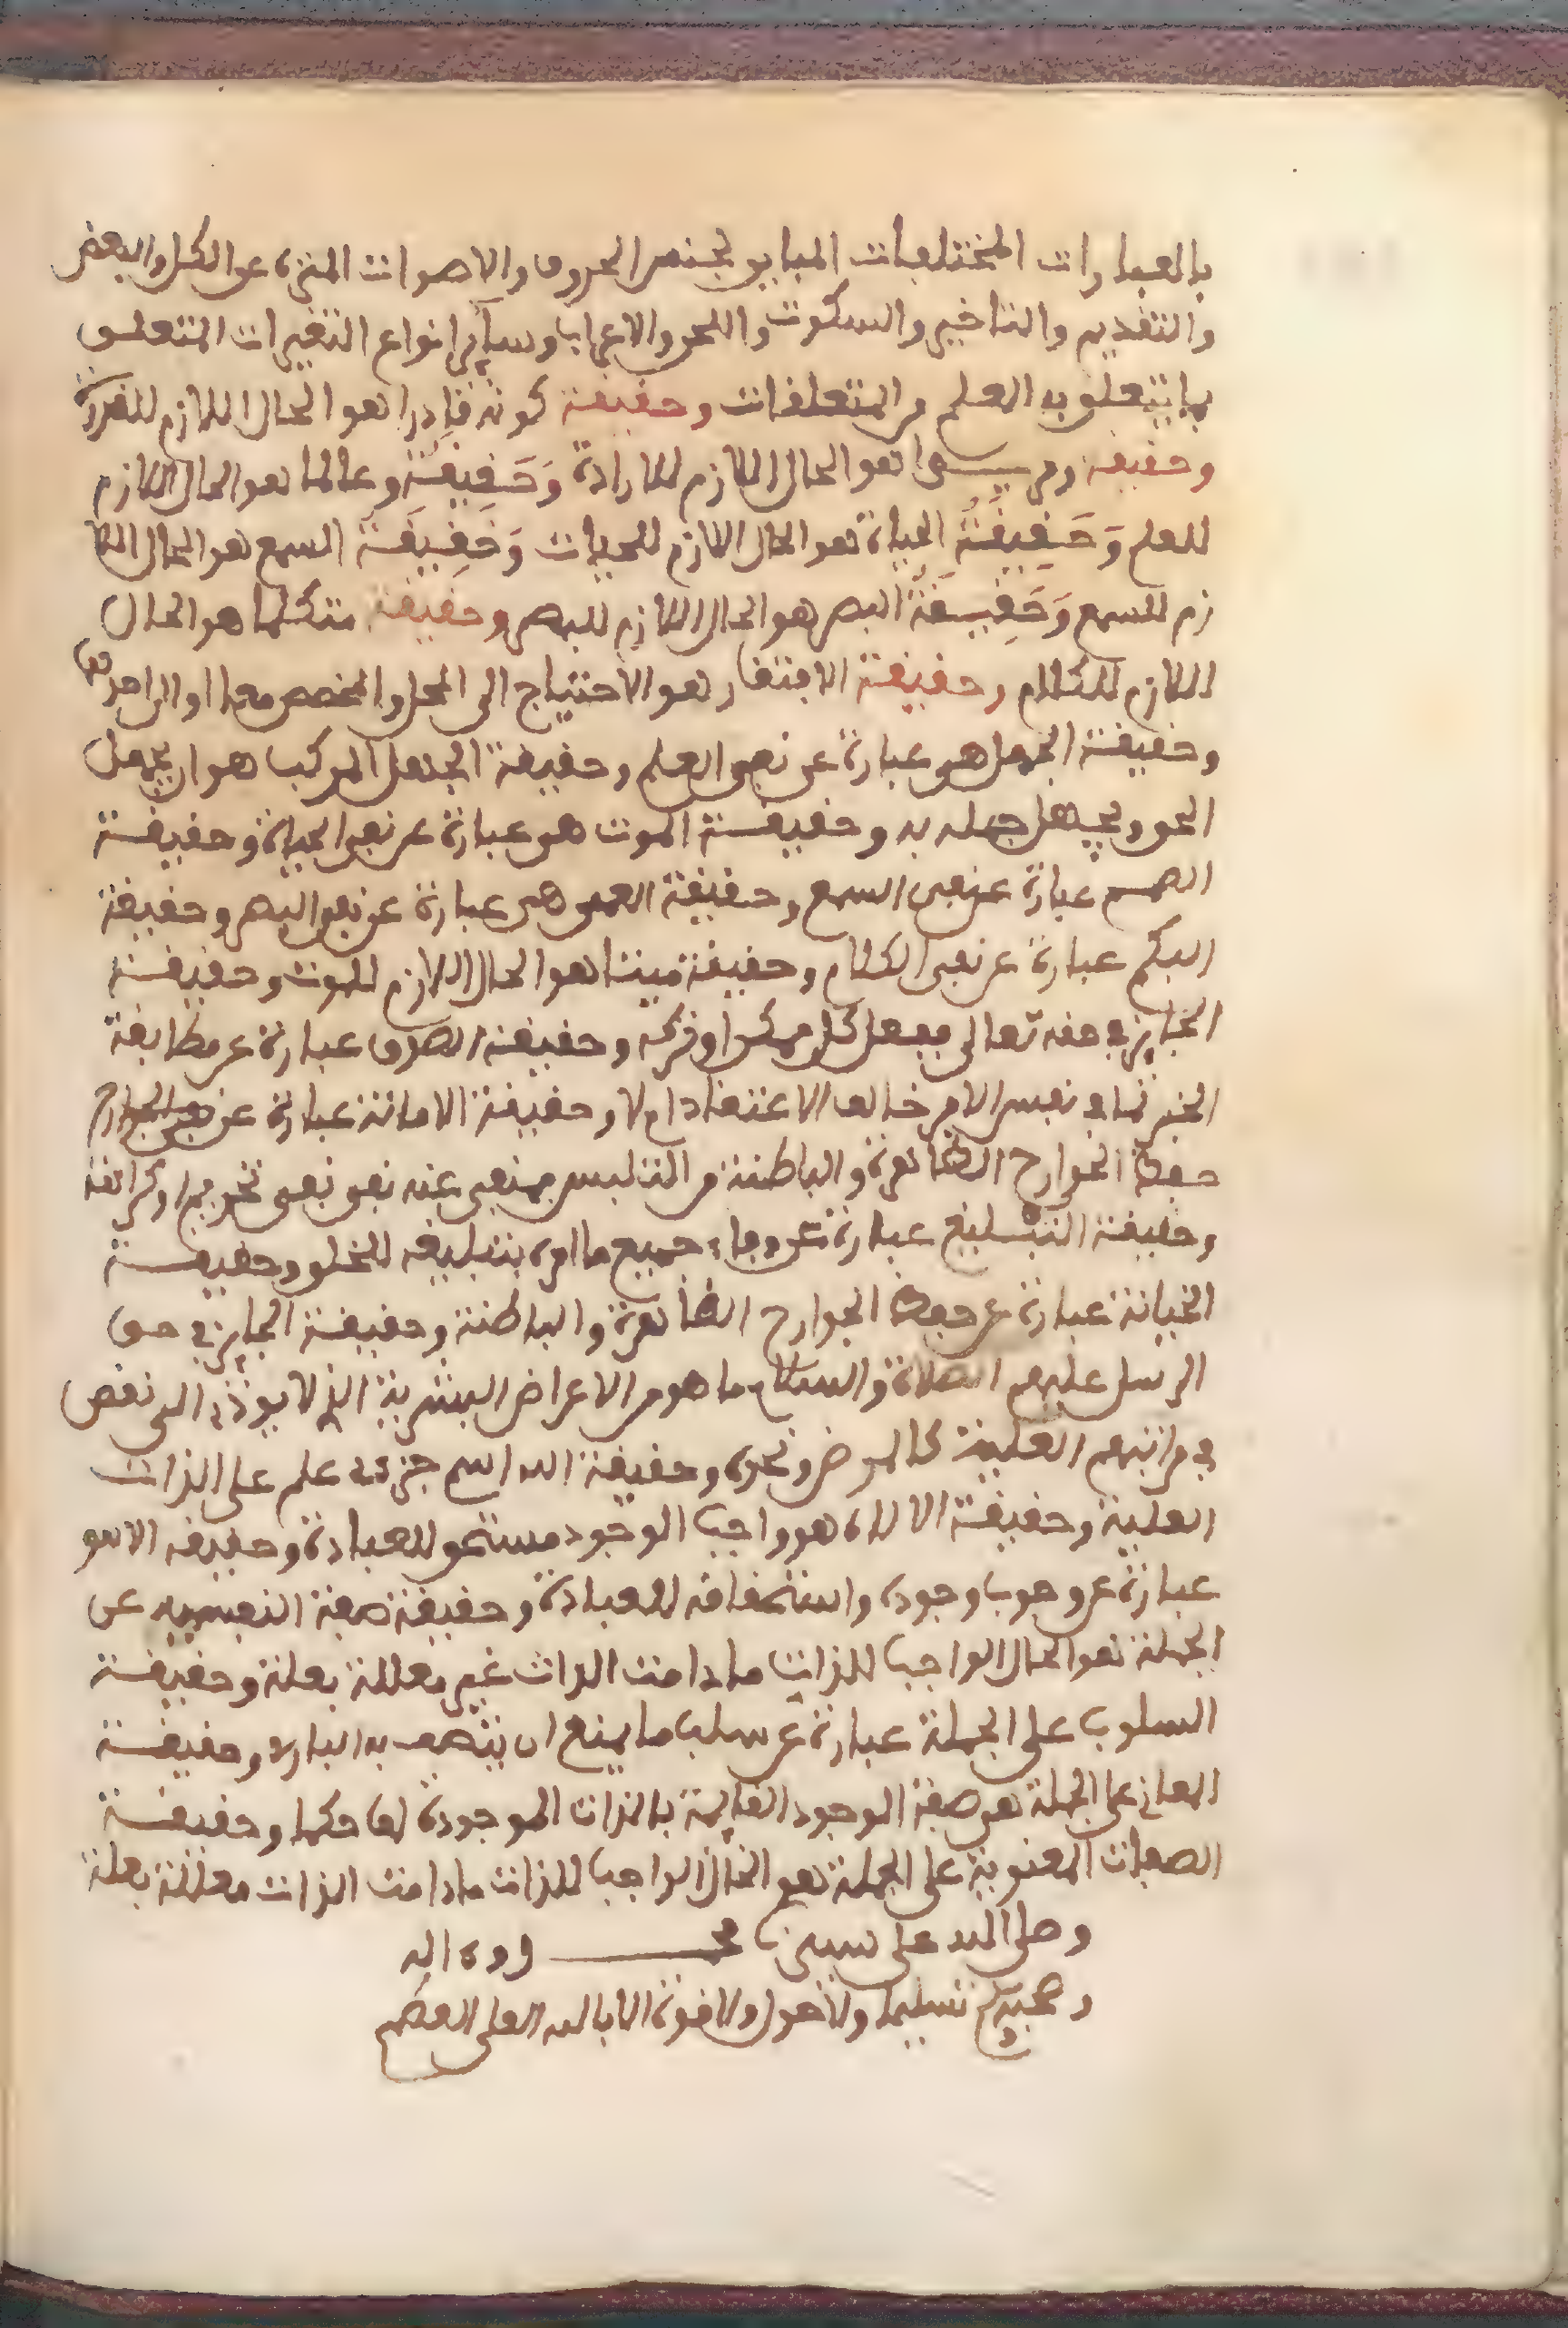 بالعبارات المختلفات المباين لجنس الحروف والاصوات المنزه عن الكل والبعض
والتقديم والتاخير والسكوت واللحن والاعراب وسآئر انواع التغيرات المتعلق
بما يتعلق به العلم من المتعلقات وحقيقة كونه قادرا هو الحال اللازم للقدرة
وحقيقة ومريدا هو الحال اللازم للارادة وَحَقِيقَةُ وعالما هو الحال اللازم
للعلم وَحَقِيقَةُ الحياة هو الحال اللازم للحيات وَحَقِيقَةُ السمع هو الحال اللا
زم للسمع وَحَقِيقَةُ البصر هو الحال اللازم للبصر وحقيقة متكلما هو الحال
اللازم للكلام وحقيقة الافتقار هو الاحتياج الى المحل والمخصص معا او الى احدهما
وحقيقة الجهل هي عبارة عن نفي العلم وحقيقة الجهل المركب هو ان يجهل
الحق ويجهل جهله به وحقيقة الموت هي عبارة عن نفي الحياة وحقيقة
الصمم عبارة عن نفي السمع وحقيقة العمى هي عبارة عن نفي البصر وحقيقة
البكم عبارة عن نفي الكلام وحقيقة ميتا هو الحال اللازم للموت وحقيقة
الجايز في حقه تعالى ففعل كل ممكن او تركه وحقيقة الصدق عبارة عن مطابقة
الخبر لما في نفس الامر خالف الاعتقاد ام لا وحقيقة الامانة عبارة عن الجوارح
حفظ الجوارح الظاهرة والباطنة من التلبس بمنهي عنه نهي نهي تحريم او كراهة
وحقيقة التبليغ عبارة عن وفاء جميع ما امره بتبليغه للخلق وحقيقة
الخيانة عبارة عن حفظ الجوارح الظاهرة والباطنة وحقيقة الجايز في حق
الرسل عليهم الصلاة والسلام ما هو من الاعراض البشرية الذي لا يوذي الى نقص
في مراتبهم العلية كالمرض ونحوه وحقيقة الله اسم جزءي علم على الذات
العلية وحقيقة الالاه هو واجب الوجود مستحق للعبادة وحقيقة الالهو
عبارة عن وجوب وجوده واستحقاقه للعبادة وحقيقة صفة النفسيه على
الجملة هو الحال الواجب للذات ما دامت الذات غير معللة بعلة وحقيقة
السلوب على الجملة عبارة عن سلب ما يمنع ان يتصف به البارى وحقيقة
المعاني على الجملة هي صفة الوجود القايمة بالذات الموجودة لها حكما وحقيقة
الصفات المعنوية على الجملة هو الحال الواجب للذات ما دامت الذات معللة بعلة
وصلى الله على سيدنا محمد واله
وصحبه وسلم تسليما ولا حول ولا قوة الا بالله العلى العظيم